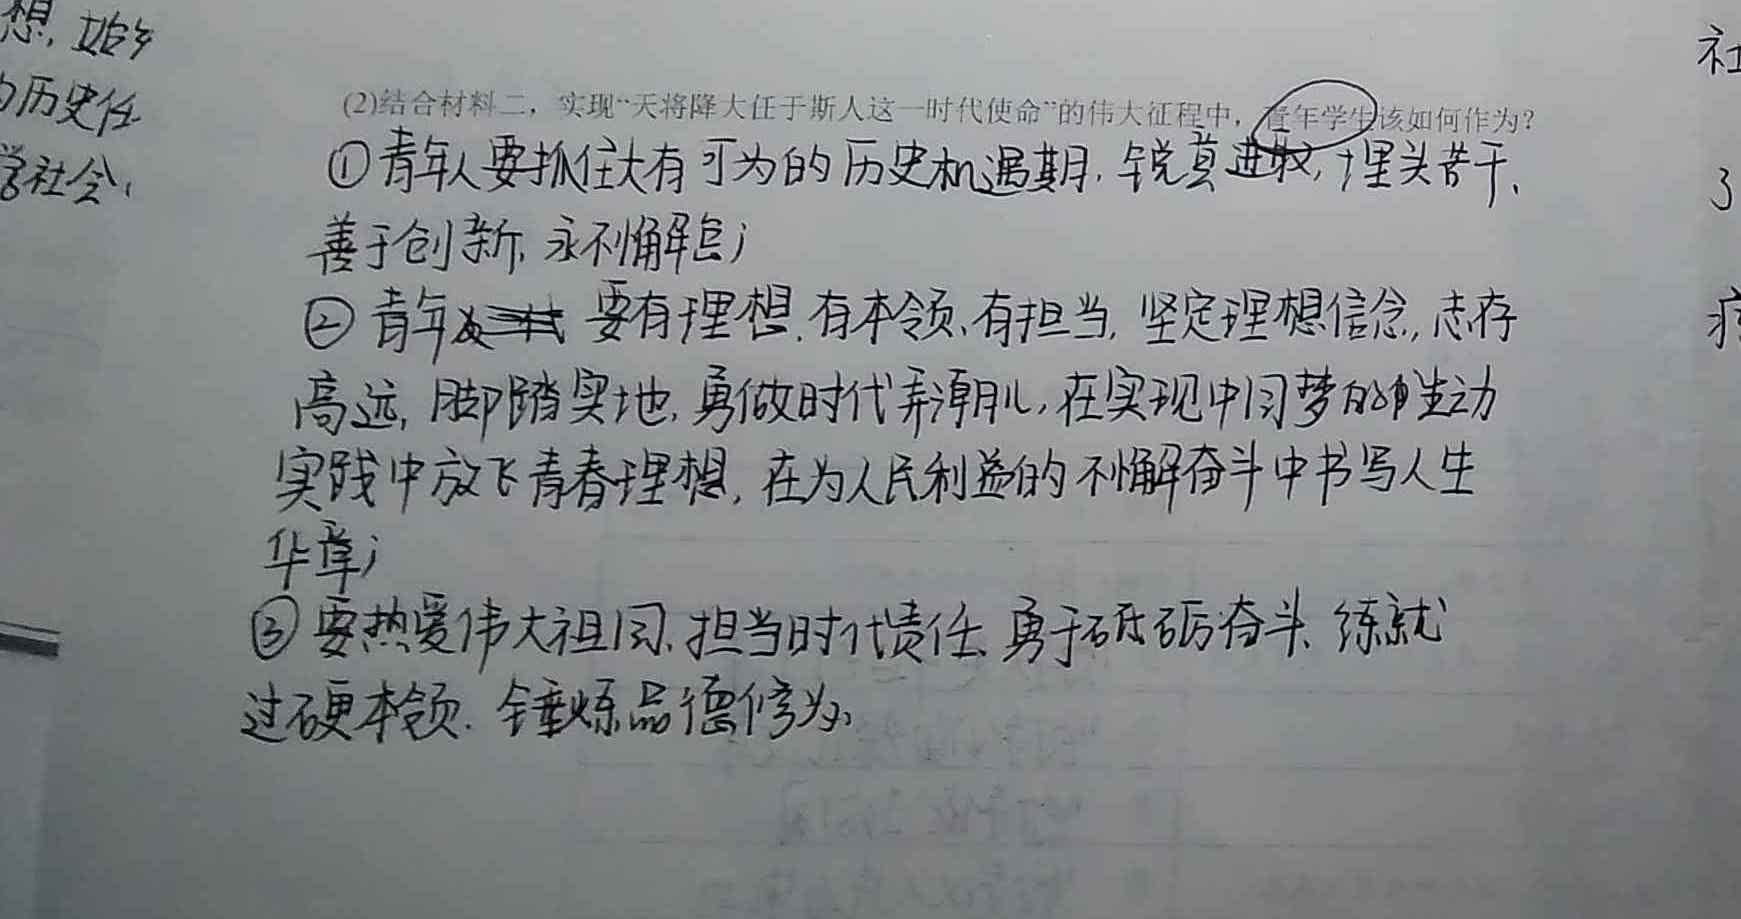 想,始终
的历史任
学社会、
(2)结合材料二，实现“天将降大任于斯人这一时代使命”的伟大征程中，青年学生该如何作为？
①青年人要抓住大有可为的历史机遇期,锐意进取,埋头苦干、
善于创新,永不懈怠;
②青年 要有理想、有本领、有担当,坚定理想信念,志存
高远,脚踏实地,勇做时代弄潮儿,在实现中国梦的生动
实践中放飞青春理想,在为人民利益的不懈奋斗中书写人生
华章;
③要热爱伟大祖国、担当时代责任、勇于砥砺奋斗、练就
过硬本领、锤炼品德修为、
社
了